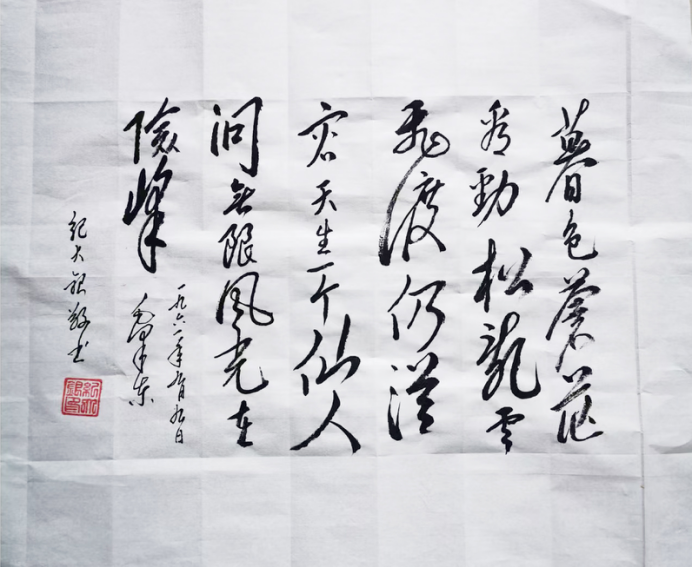 暮色蒼茫
看勁松亂雲
飛渡仍從
容天生一个仙人
洞無限風光在
險峰
一九六一年九月九日
毛澤東
紀大銀敬书